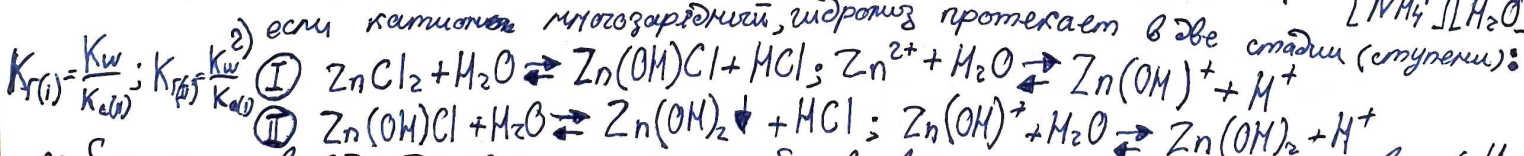 [NH₄⁺][H₂O]
2) если катион многозарядный, гидролиз протекает в две стадии (ступени):
K_г(I) = K_w / K_a(II) ; K_г(II) = K_w / K_a(I)
(I) ZnCl₂ + H₂O ⇄ Zn(OH)Cl + HCl ; Zn²⁺ + H₂O ⇄ Zn(OH)⁺ + H⁺
(II) Zn(OH)Cl + H₂O ⇄ Zn(OH)₂↓ + HCl ; Zn(OH)⁺ + H₂O ⇄ Zn(OH)₂ + H⁺